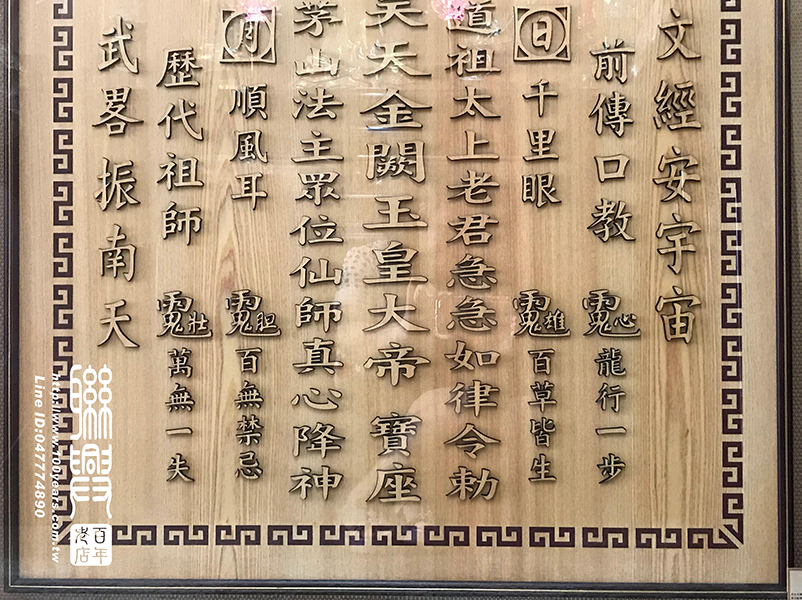 文經安宇宙
前傳口教 龍行一步
日 千里眼 百草皆生
道祖太上老君急急如律令勅
昊天金闕玉皇大帝 寶座
茅山法主眾位仙師真心降神
月 順風耳 百無禁忌
歷代祖師 萬無一失
武畧振南天
聯興
百年老店
http://www.100years.com.tw
Line ID:047774890